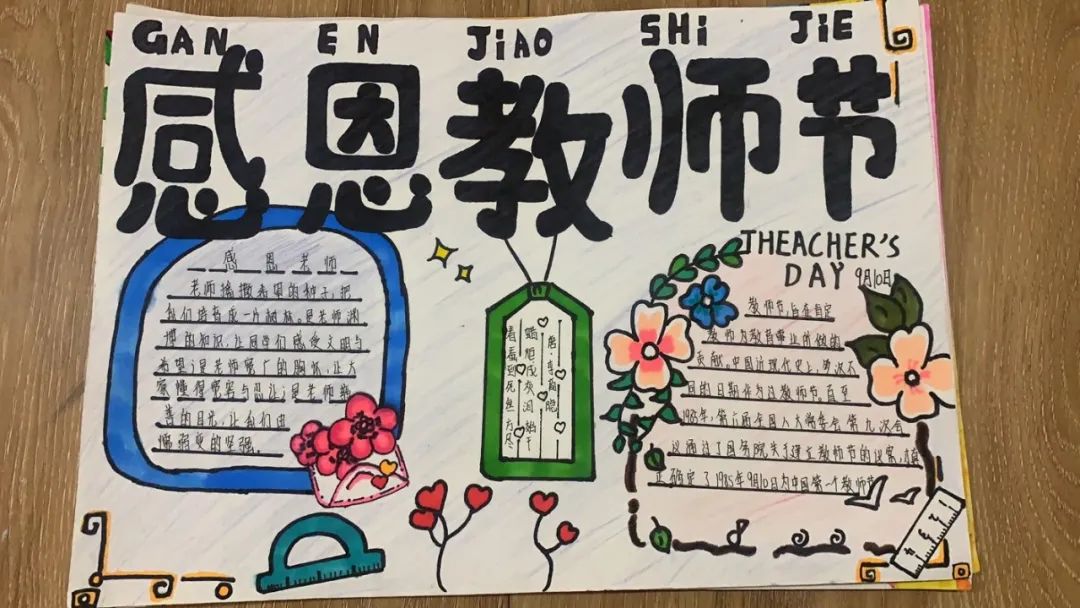 GAN EN JiAO SHi JiE
感恩教师节
感恩老师
老师播撒希望的种子,把
我们培育成一片树林。是老师渊
博的知识,让同学们感受文明与
希望;是老师宽广的胸怀,让大
家懂得宽容与忍让;是老师
善的目光,让我们由
懦弱变的坚强。
唐·李商隐
蜡炬成灰泪始干
春蚕到死丝方尽
THEACHER'S
DAY 9月10日
教师节,旨在肯定
教师为教育事业所做的
贡献。中国近现代史上,多次不
同的日期作为过教师节。直至
1985年,第六届全国人大常委会第九次会
议通过了国务院关于建立教师节的议案,才真
正确定了1985年9月10日为中国第一个教师节